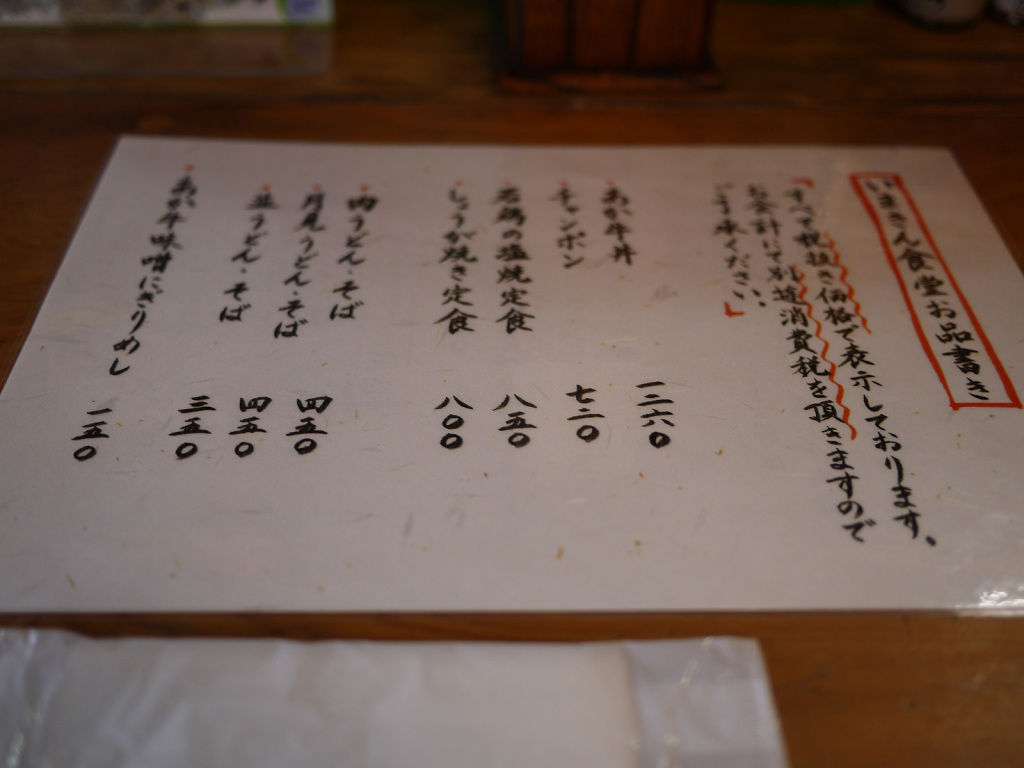 いまきん食堂お品書き
「すべて税抜き価格で表示しております、
お会計にて別途消費税を頂きますので
ご了承ください。」
あか牛丼 一二六〇
チャンポン 七二〇
若鶏の塩焼定食 八五〇
しょうが焼き定食 八〇〇
肉うどん・そば 四五〇
月見うどん・そば 四五〇
並うどん・そば 三五〇
あか牛味噌にぎりめし 一五〇